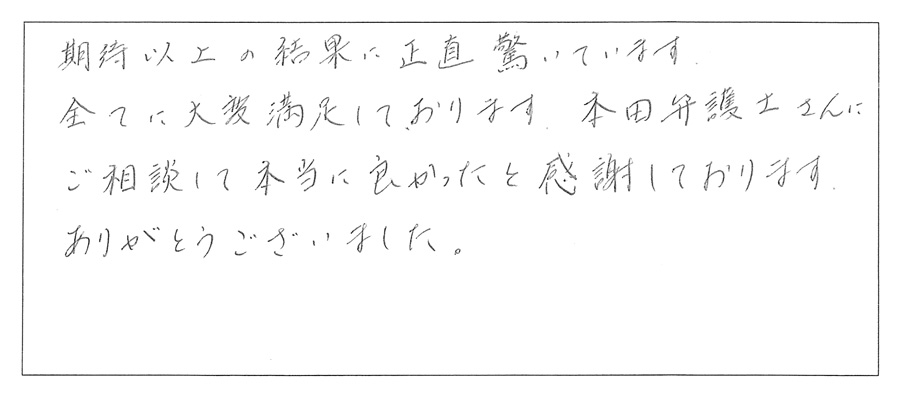 期待以上の結果に正直驚いています.
全てに大変満足しております. 本田弁護士さんに
ご相談して本当に良かったと感謝しております.
ありがとうございました。